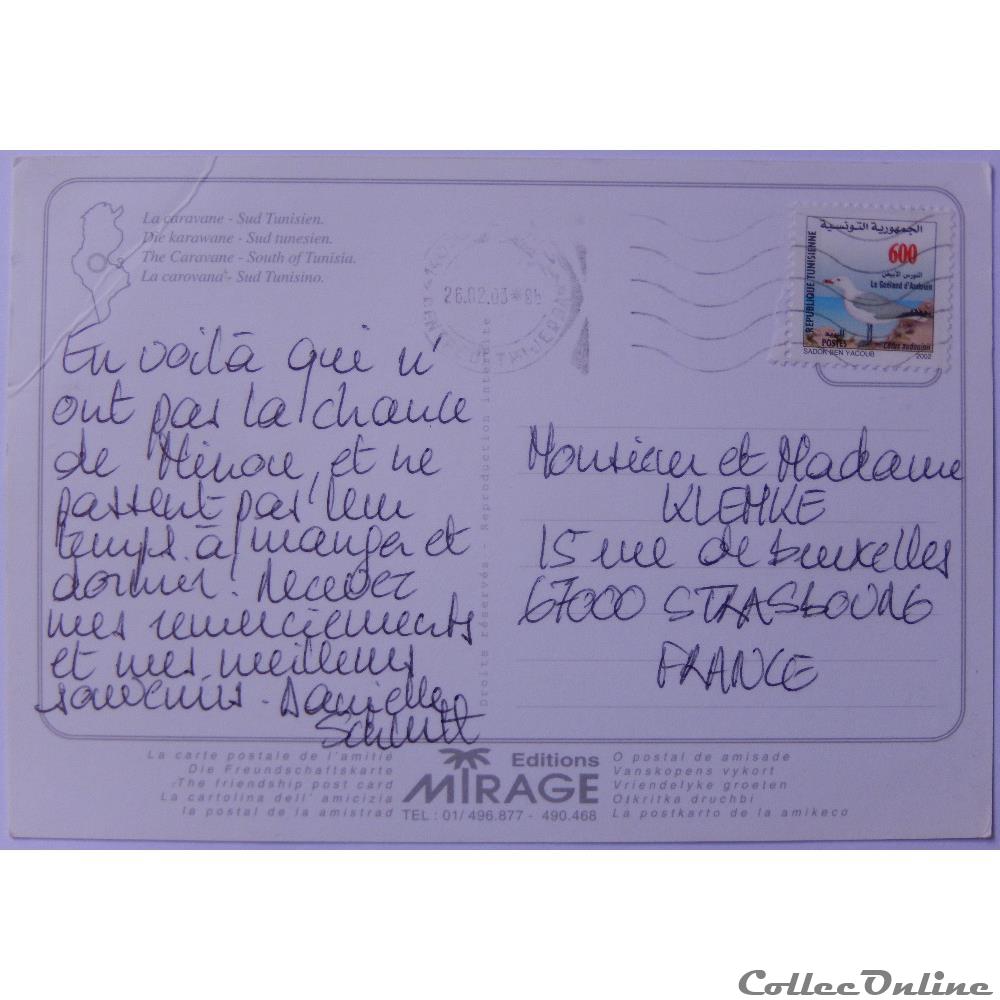 La caravane - Sud Tunisien.
Die karawane - Sud tunesien.
The Caravane - South of Tunisia.
La carovana - Sud Tunisino.
26.02.03
الجمهورية التونسية
600
النورس الأبيض
Le Goéland d'Audouin
REPUBLIQUE TUNISIENNE
البريد
POSTES
Larus audouinii
SADOK BEN YACOUB
2002
En voilà qui n'
ont pas la chance
de Minou, et ne
passent pas leur
temps à manger et
dormir! Recevez
mes remerciements
et mes meilleurs
souvenirs. Danielle
Schmitt
Droits réservés - Reproduction interdite
Monsieur et Madame
KLEMKE
15 rue de bruxelles
67000 STRASBOURG
FRANCE
La carte postale de l'amitié
Die Freundschaftskarte
The friendship post card
La cartolina dell' amicizia
la postal de la amistrad
Editions
MIRAGE
TEL : 01/ 496.877 - 490.468
O postal de amisade
Vanskopens vykort
Vriendelyke groeten
Otkritka druchbi
La postkarto de la amikeco
CollecOnline